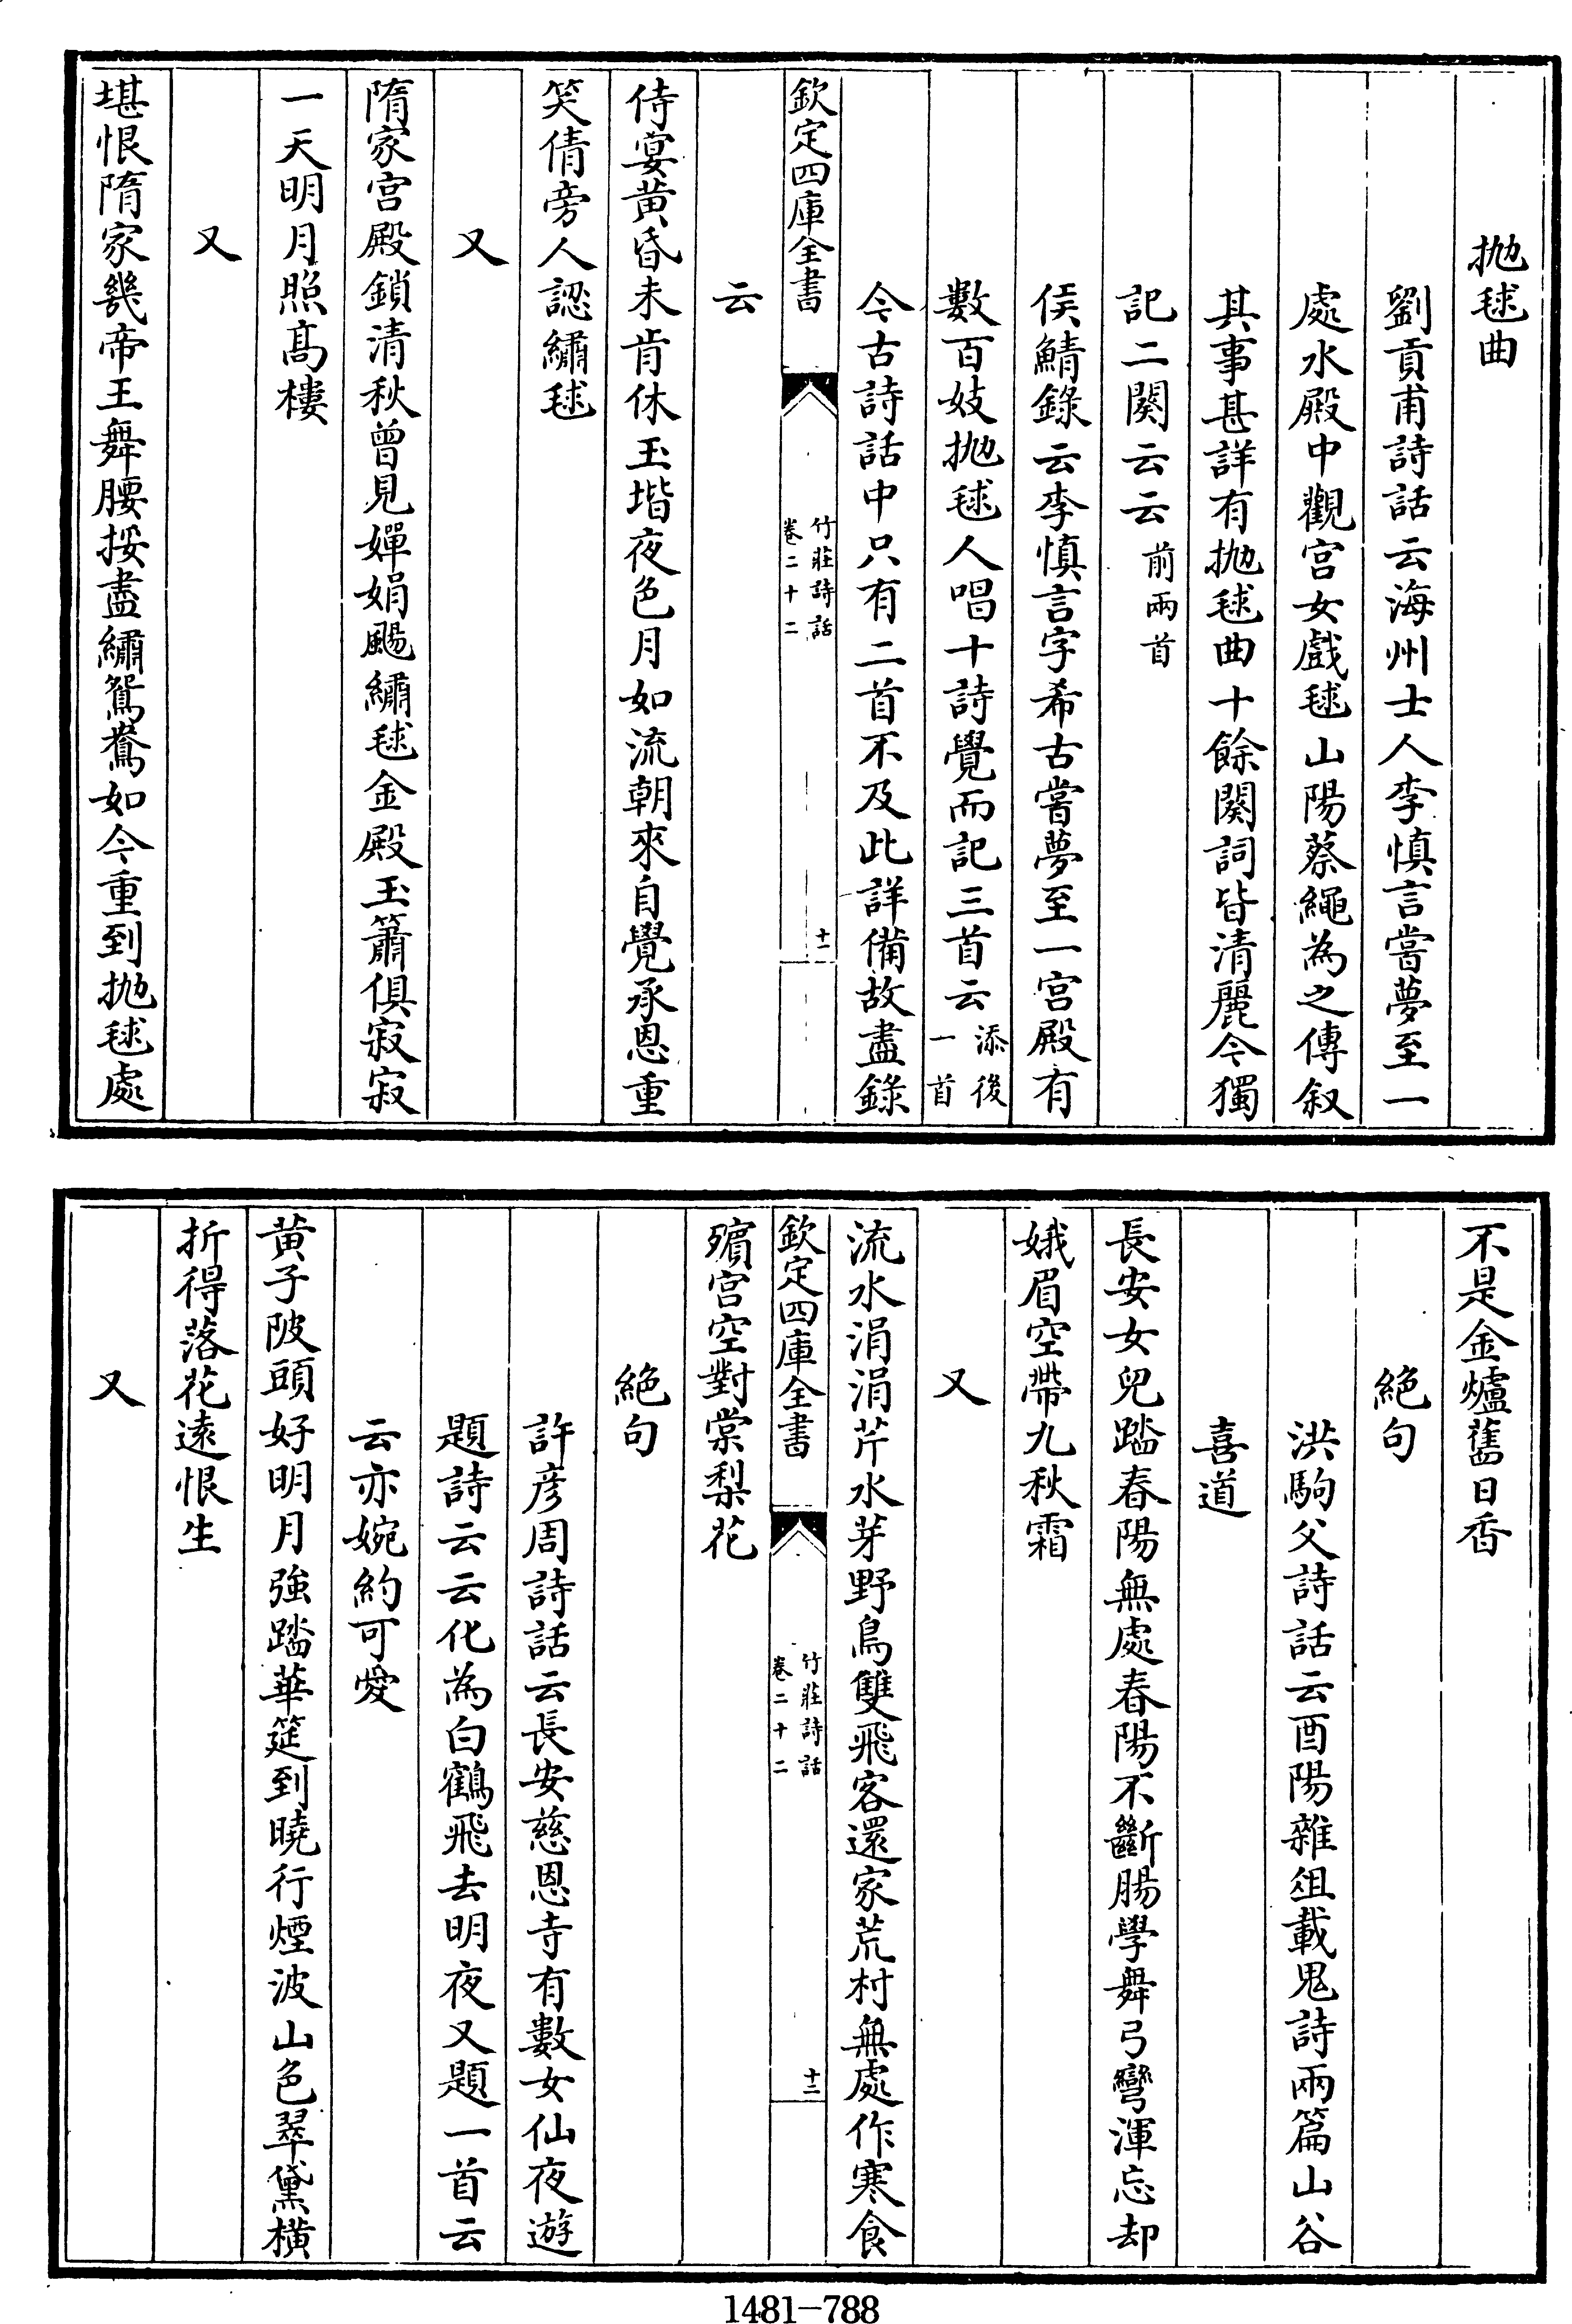 抛毬曲
劉貢甫詩話云海州士人李慎言嘗夢至一
處水殿中觀宫女戲毬山陽蔡繩為之傳叙
其事甚詳有抛毬曲十餘闋詞皆清麗今獨
記二闋云云前兩首
侯鯖錄云李慎言字希古嘗夢至一宫殿有
數百妓抛毬人唱十詩覺而記三首云添後一首
今古詩話中只有二首不及此詳備故盡錄
欽定四庫全書
竹莊詩話
卷二十二
十一
云
侍宴黄昏未肯休玉堦夜色月如流朝來自覺承恩重
笑倩旁人認繡毬
又
隋家宫殿鎖清秋曾見嬋娟颺繡毬金殿玉簫俱寂寂
一天明月照髙樓
又
堪恨隋家幾帝王舞腰挼盡繡鴛鴦如今重到抛毬處
不是金爐舊日香
絶句
洪駒父詩話云酉陽雜俎載鬼詩兩篇山谷
喜道
長安女兒踏春陽無處春陽不斷腸學舞弓彎渾忘却
娥眉空帶九秋霜
又
流水涓涓芹水芽野鳥雙飛客還家荒村無處作寒食
欽定四庫全書
竹莊詩話
卷二十二
十二
殯宫空對棠梨花
絶句
許彦周詩話云長安慈恩寺有數女仙夜遊
題詩云云化為白鶴飛去明夜又題一首云
云亦婉約可愛
黄子陂頭好明月強踏華筵到曉行煙波山色翠黛横
折得落花遠恨生
又
1481-788